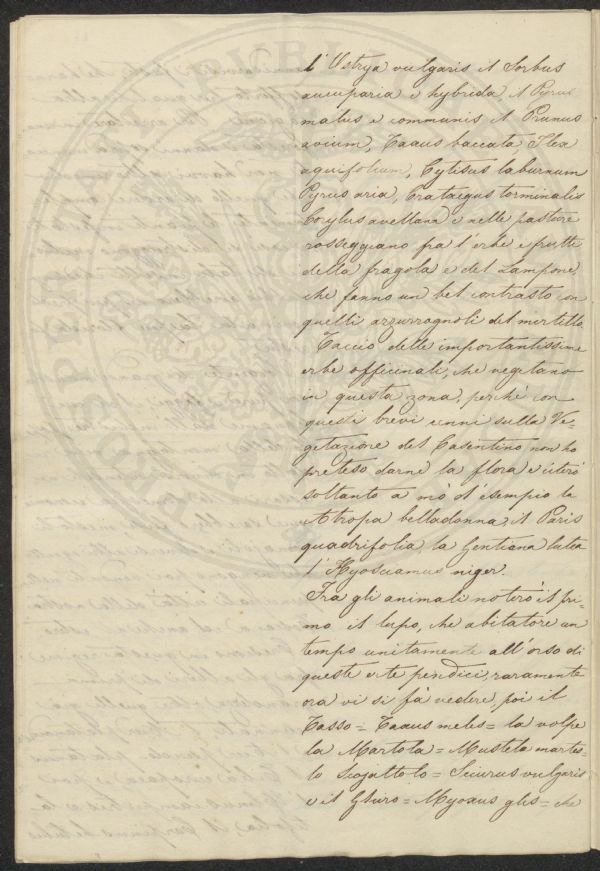 l'Ostrya vulgaris il Sorbus
aucuparia e hybrida il Pyrus
malus e communis il Prunus
avium, Taxus baccata Ilex
aquifolium, Cytisus laburnum
Pyrus aria, Crataegus torminalis
Corylus avellana e nelle pasture
rosseggiano fra l'erbe i frutti
della fragola e del Lampone
che fanno un bel contrasto con
quelli azzurrognoli del mirtillo
Taccio delle importantissime
erbe officinali, che vegetano
in questa zona, perchè con
questi brevi cenni sulla Ve=
getazione del Casentino non ho
preteso darne la flora e citerò
soltanto a mò d'esempio la
Atropa belladonna, il Paris
quadrifolia, la Gentiana lutea
l'Hyosciamus niger.
Fra gli animali noterò il pri=
mo il lupo, che abitatore un
tempo unitamente all'orso di
queste erte pendici, raramente
ora vi si fà vedere, poi il
Tasso = Taxus meles = la volpe
la Martola = Mustela martes=
lo Scojattolo = Sciurus vulgaris
e il Ghiro = Myoxus glis = che